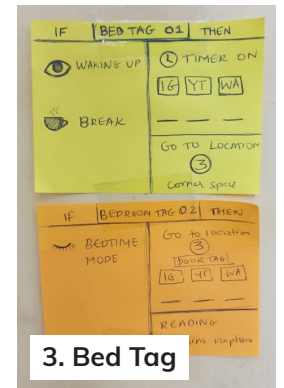 IF BED TAG 01 THEN
WAKING UP
BREAK
TIMER ON
IG YT WA
GO TO LOCATION
3
corner space
IF BEDROOM TAG 02 THEN
BEDTIME
MODE
Go to location
3
DOOR TAG
IG YT WA
READING
no phone
3. Bed Tag